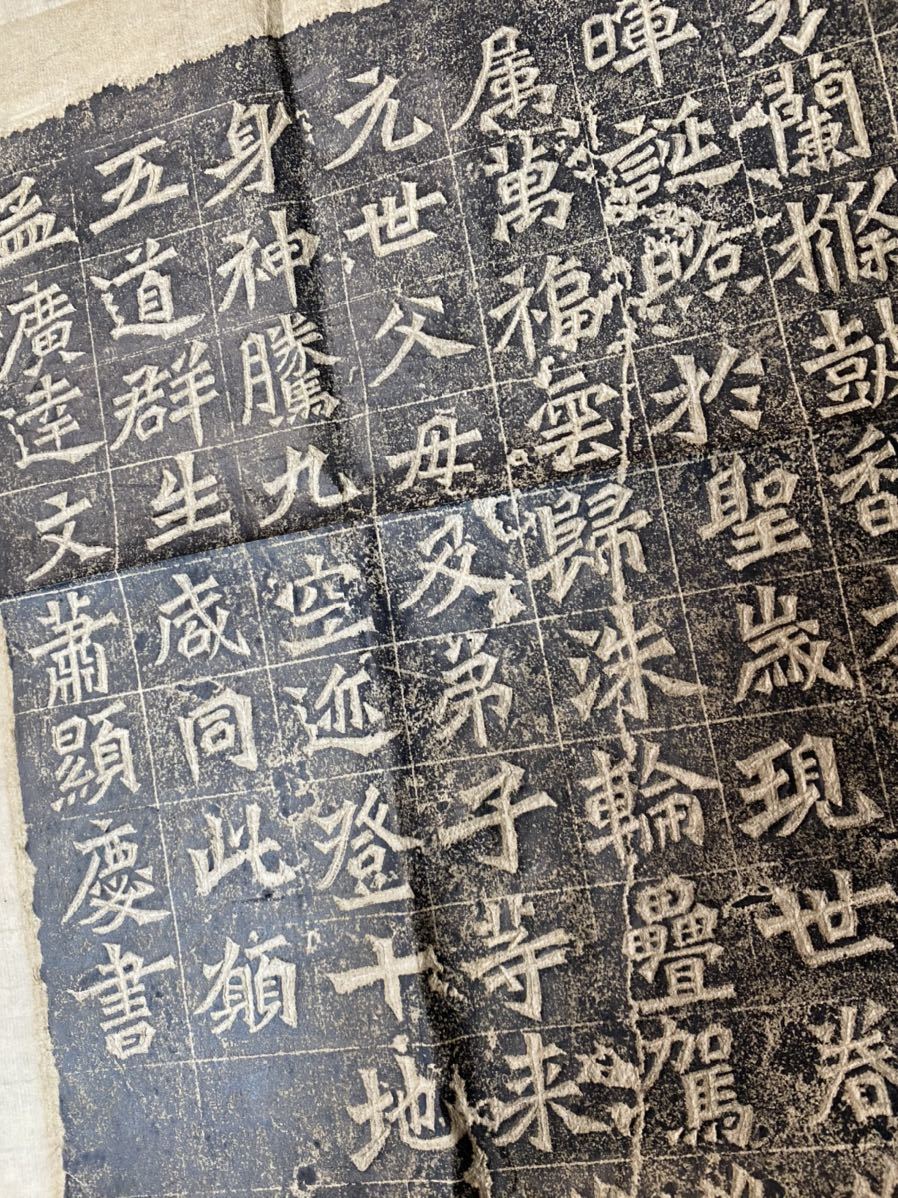 蘭條鼓
暉誕照於聖歲現世眷
属萬福雲歸洙輪疊駕
元世父母及弟子等来
身神騰九空迹登十地
五道群生咸同此願
孟廣達文蕭顯慶書